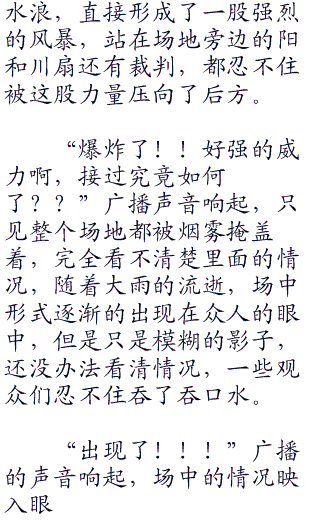 水浪，直接形成了一股强烈
的风暴，站在场地旁边的阳
和川扇还有裁判，都忍不住
被这股力量压向了后方。
“爆炸了！！好强的威
力啊，接过究竟如何
了？？”广播声音响起，只
见整个场地都被烟雾掩盖
着，完全看不清楚里面的情
况，随着大雨的流逝，场中
形式逐渐的出现在众人的眼
中，但是只是模糊的影子，
还没办法看清情况，一些观
众们忍不住吞了吞口水。
“出现了！！！”广播
的声音响起，场中的情况映
入眼